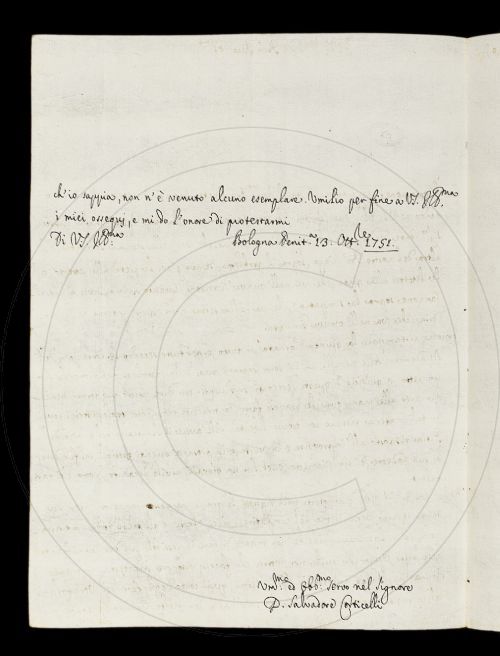 ch'io sappia, non n'è venuto alcuno esemplare. Umilio per fine a VS. Ill.ma
i miei ossequj, e mi do l'onore di protestarmi
Di VS. Ill.ma Bologna Penit.a 13. Ott.re 1751.
Um.mo ed Obb.mo Servo nel Signore
D. Salvadore Corticelli